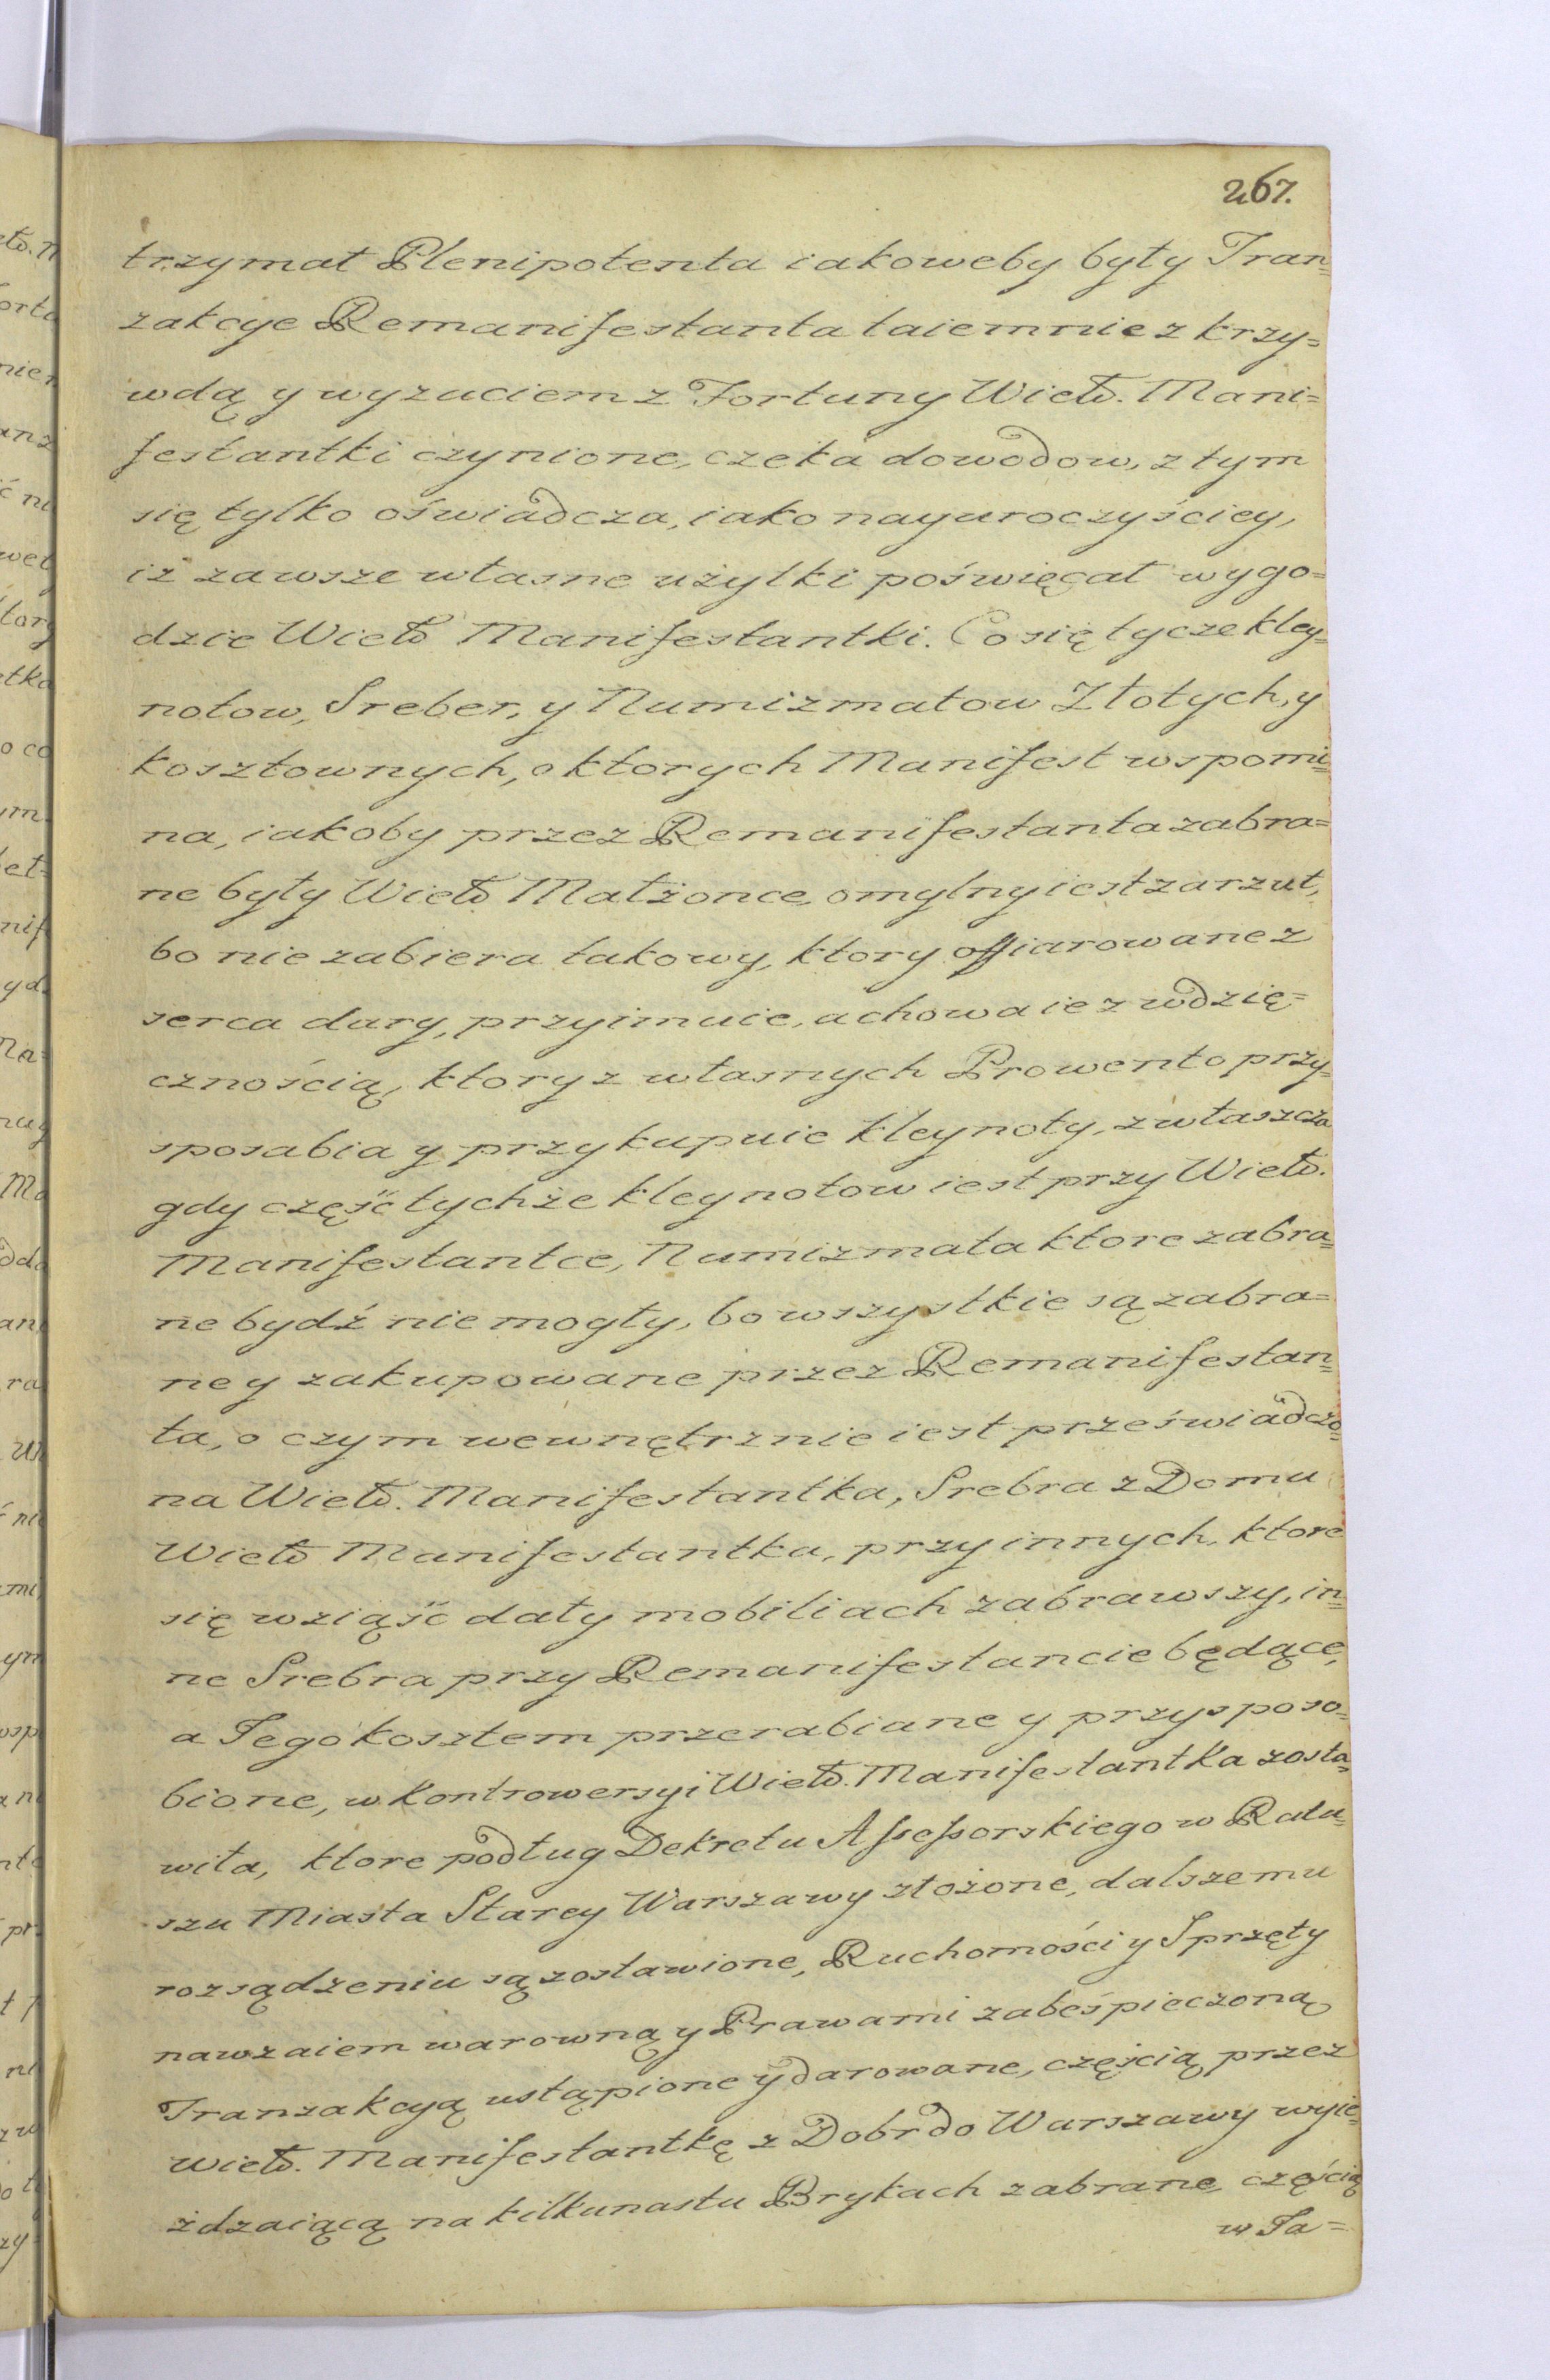 267.
trzymał Plenipotenta iakoweby były Tran=
zakcye Remanifestanta taiemnie z krzy=
wdą y wyzuciem z Fortuny Wield. Mani=
festantki czynione, czeka dowodow, z tym
się tylko oświadcza, iako nayuroczyściey,
iż zawsze własne użytki poświęcał wygo=
dzie Wield Manifestantki. Co się tycze kley=
notow, Sreber, y Numizmatow Złotych, y
kosztownych, o ktorych Manifest wspomi=
na, iakoby przez Remanifestanta zabra=
ne były Wield Małżonce, omylny iest zarzut,
bo nie zabiera takowy, ktory offiarowane z
serca dary, przyimuie, a chowa ie z wdzię=
cznością, ktory z własnych Prowento przy=
sposabia y przykupuie kleynoty, zwłaszcza
gdy część tychże kleynotow iest przy Wield.
Manifestantce, Numizmata ktore zabra=
ne bydź nie mogły, bo wszystkie są zabra=
ne y zakupowane przez Remanifestan=
ta, o czym wewnętrznie iest przeświadczo=
na Wield. Manifestantka, Srebra z Domu
Wield Manifestantka, przy innych, ktore
się wziąść dały mobiliach zabrawszy, in=
ne Srebra przy Remanifestancie będące,
a Jego kosztem przerabiane y przysposo=
bione, w kontrowersyi Wield. Manifestantka zosta=
wiła, ktore podług Dekretu Assessorskiego w Ratu=
szu Miasta Starey Warszawy złożone, dalszemu
rozsądzeniu są zostawione, Ruchomości y Sprzęty
nawzaiem warowną y Prawami zabeśpieczoną
Tranzakcyą ustąpione y darowane, częścią przez
Wield. Manifestantkę z Dobr do Warszawy wyie=
żdzaiącą na kilkunastu Brykach zabrane, częścią
w Pa=